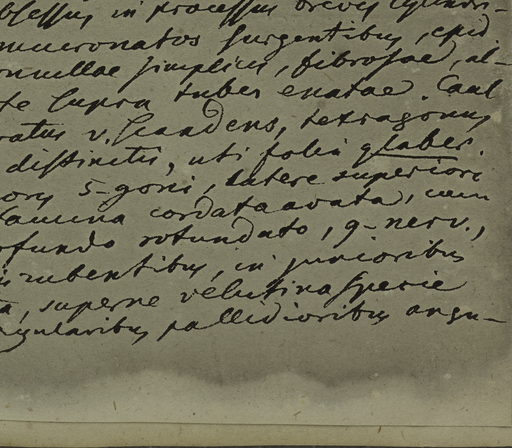 obsessus in processus breves cylindri-
mucronatos surgentibus, epid.
nonnullae simplices, fibrosae, al-
te supra tuber enatae. Caul
ratus v. scandens, tetragonus
distinctis, uti folia glaber.
5-goni, latere superiore
lamina cordata ovata, cum
rofundo rotundato, 9-nerv.,
rubentibus, in junioribus
superne velutina specie
ngularibus pallidioribus angu-